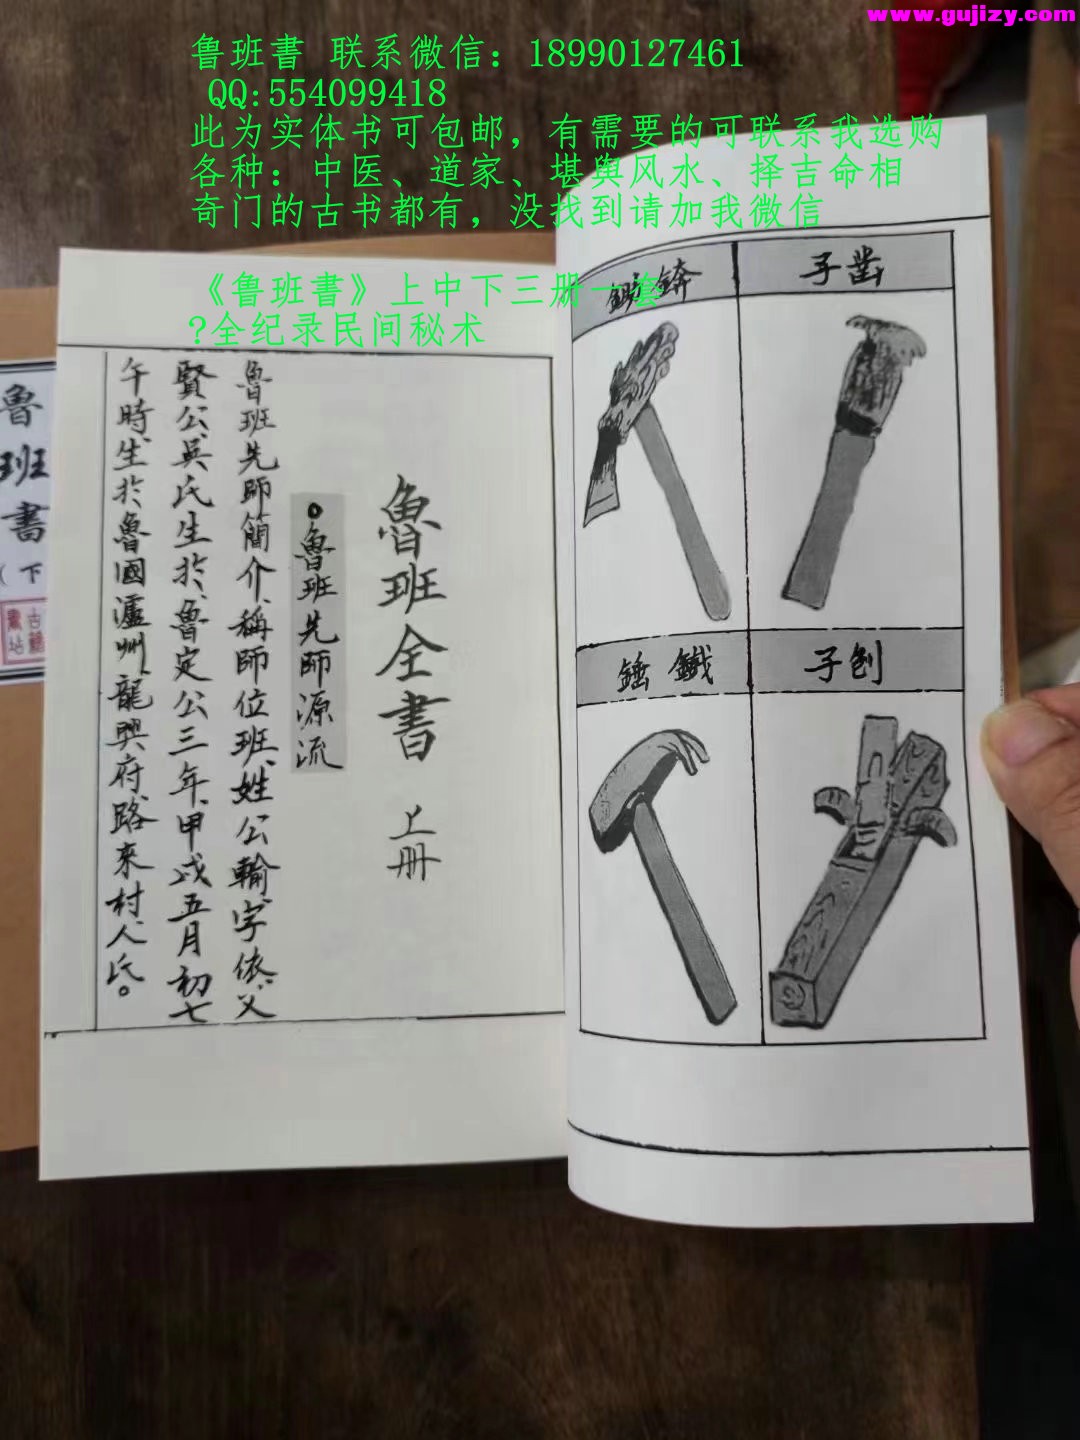 www.gujizy.com
鲁班書 联系微信：18990127461
QQ:554099418
此为实体书可包邮，有需要的可联系我选购
各种：中医、道家、堪舆风水、择吉命相
奇门的古书都有，没找到请加我微信
《鲁班書》上中下三册一套
?全纪录民间秘术
子凿
錛
子刨
錘鐵
魯班全書 上册
。魯班先師源流
魯班先師簡介、稱師位班、姓公輸、字依、父
賢公、吳氏生於、魯定公三年、甲戌五月初七
午時、生於魯國瀘州、龍興府、路來村、人氏。
魯班書（下